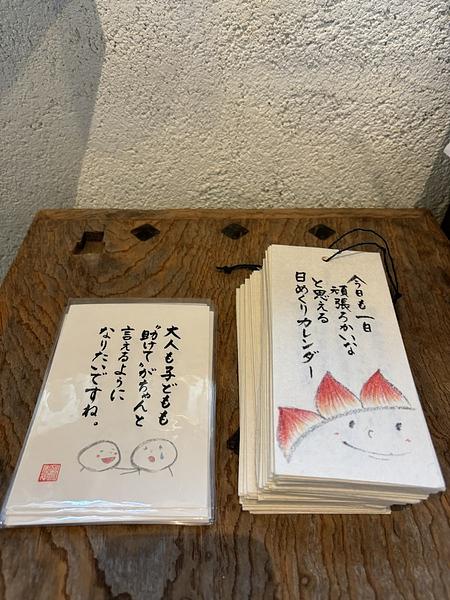 大人も子どもも
"助けて"がちゃんと
言えるように
なりたいですね。
今日も一日
頑張ろかいな
と思える
日めくりカレンダー